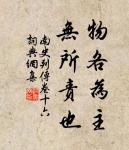 物各為主
無所責也
南史列傳卷十六
詞典網集